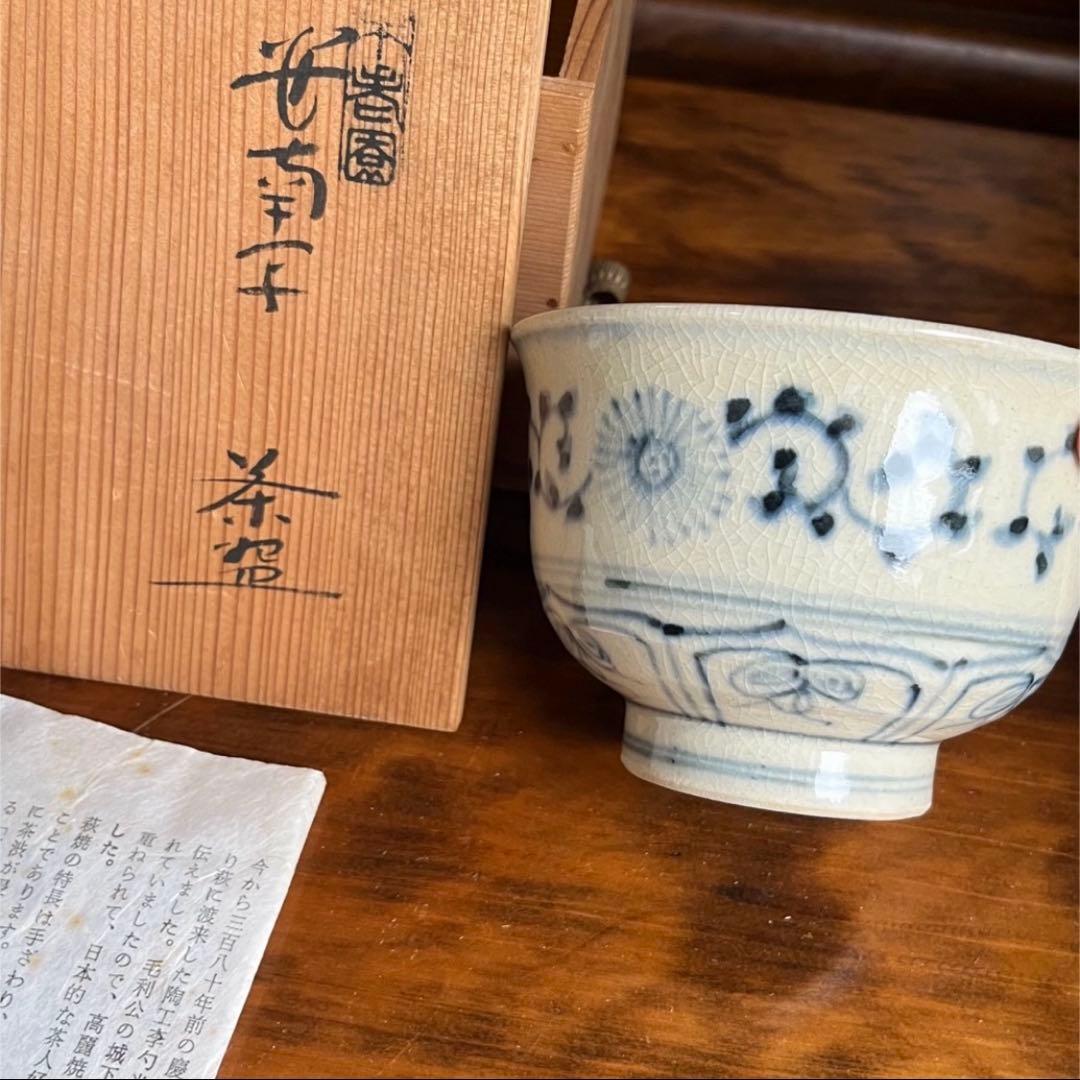 安南手
茶盌
今から三百八十年前の慶
り萩に渡来した陶工李勺
伝えました。毛利公の城下
れていましたので、高麗焼
重ねられて、日本的な茶人好
した。
萩焼の特長は手ざわり、
ことであります。
に茶渋が
る